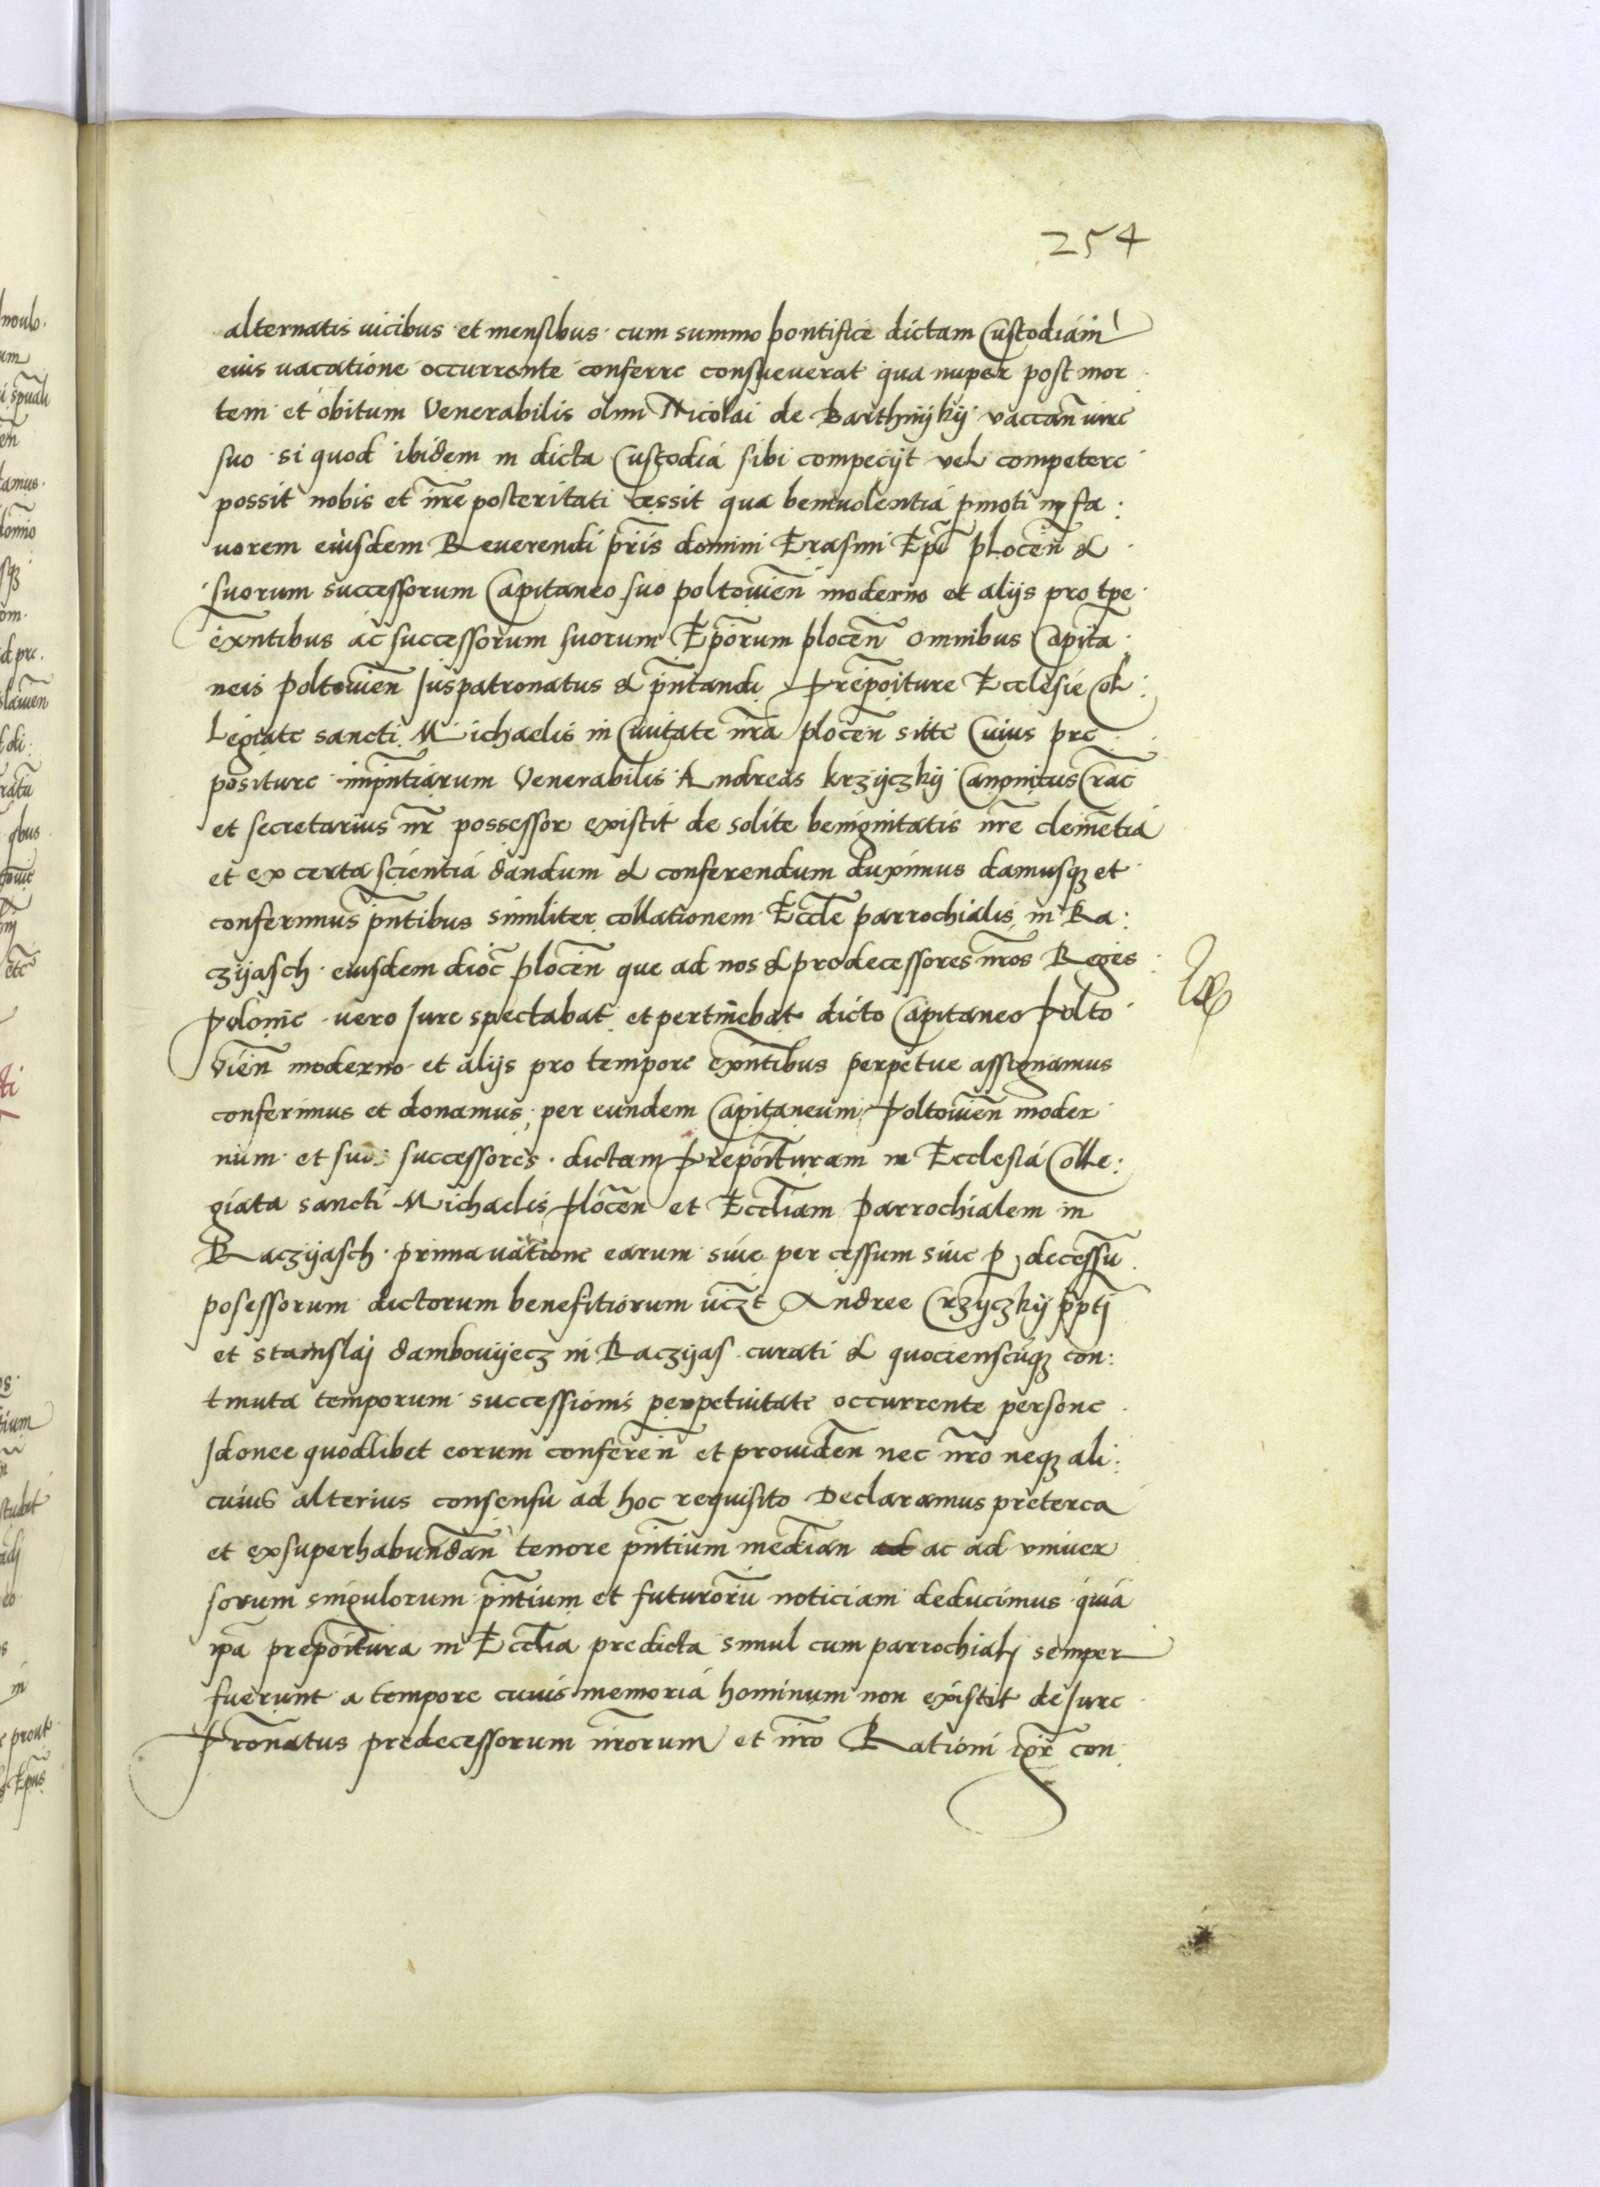 254
alternatis vicibus et mensibus cum summo pontifice dictam Custodiam
eius vacatione occurrente conferre consueverat qua nuper post mor
tem et obitum Venerabilis olim Nicolai de Barthnijkij vaccan iure
suo si quod ibidem in dicta Custodia sibi compecijt vel competere
possit nobis et nr̃e posteritati cessit qua benivolentia pmoti in fa:
uorem eiusdem Reverendi pr̃is domini Erasmi Ep̃i plocen̄ et
suorum successorum Capitaneo suo poltovien̄ moderno et alijs pro tp̃e
exñtibus ac successorum suorum Ep̃orum plocen̄ omnibus Capita
neis poltovien̄ Juspatronatus et pñtandi Prepo͂iture Ecclesie Col:
Legiate sancti Michaelis in Civitate nr̃a plocen̄ site Cuius pre
positure impñtiarum Venerabilis Andreas Krzijczkij Canonicus Crac̄
et secretarius nr̃ possessor existit de solite benignitatis nr̃e clemẽtia
et ex certa scientia dandum et conferendum duximus damusq; et
conferimus pñtibus similiter collationem Eccl̃e parrochialis in Ra:
czijasch eiusdem dioc̄ plocen̄ que ad nos et prodecessores nr̃os Reges
polonie vero Jure spectabat et pertinebat dicto Capitaneo Polto
vien̄ moderno et alijs pro tempore exñtibus perpetue assignamus
conferimus et donamus, per eundem Capitaneum Poltovien̄ moder
num et suos successores dictam Prepo͂ituram in Ecclesia Colle:
giata sancti Michaelis Plocen̄ et Eccl̃iam parrochialem in
Raczijasch prima vac̃atione earum sive per cessum sive p decessũ
posessorum dictorum benefitiorum vicz̃t Andree Crzyczkij pp̃tj
et stanislaj dambovijecz in Raczijas curati et quocienscũq; con:
tinuta temporum successionis perpetuitate occurrente persone
Jdonee quodlibet eorum conferen̄ et providen̄ nec nr̃o neq; ali:
cuius alterius consensu ad hoc requisito Declaramus preterea
et exsuperhabundan̄ tenore pñtium median̄ ac ad univer
sorum singulorum pñtium et futurorũ noticiam deducimus quia
ip̃a prepo͂itura in Eccl̃ia predicta simul cum parrochialj semper
fuerunt a tempore cuius memoria hominum non existit de Jure
Pr̃onatus predecessorum nr̃orum et nr̃o Rationi igr̃ con